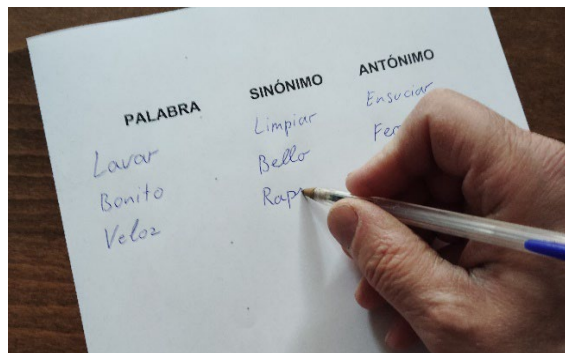 PALABRA SINÓNIMO ANTÓNIMO
Lavar Limpiar Ensuciar
Bonito Bello
Veloz